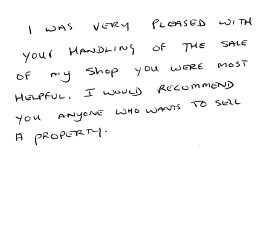 I WAS VERY PLEASED WITH
YOUR HANDLING OF THE SALE
OF MY SHOP YOU WERE MOST
HELPFUL. I WOULD RECOMMEND
YOU ANYONE WHO WANTS TO SELL
A PROPERTY.